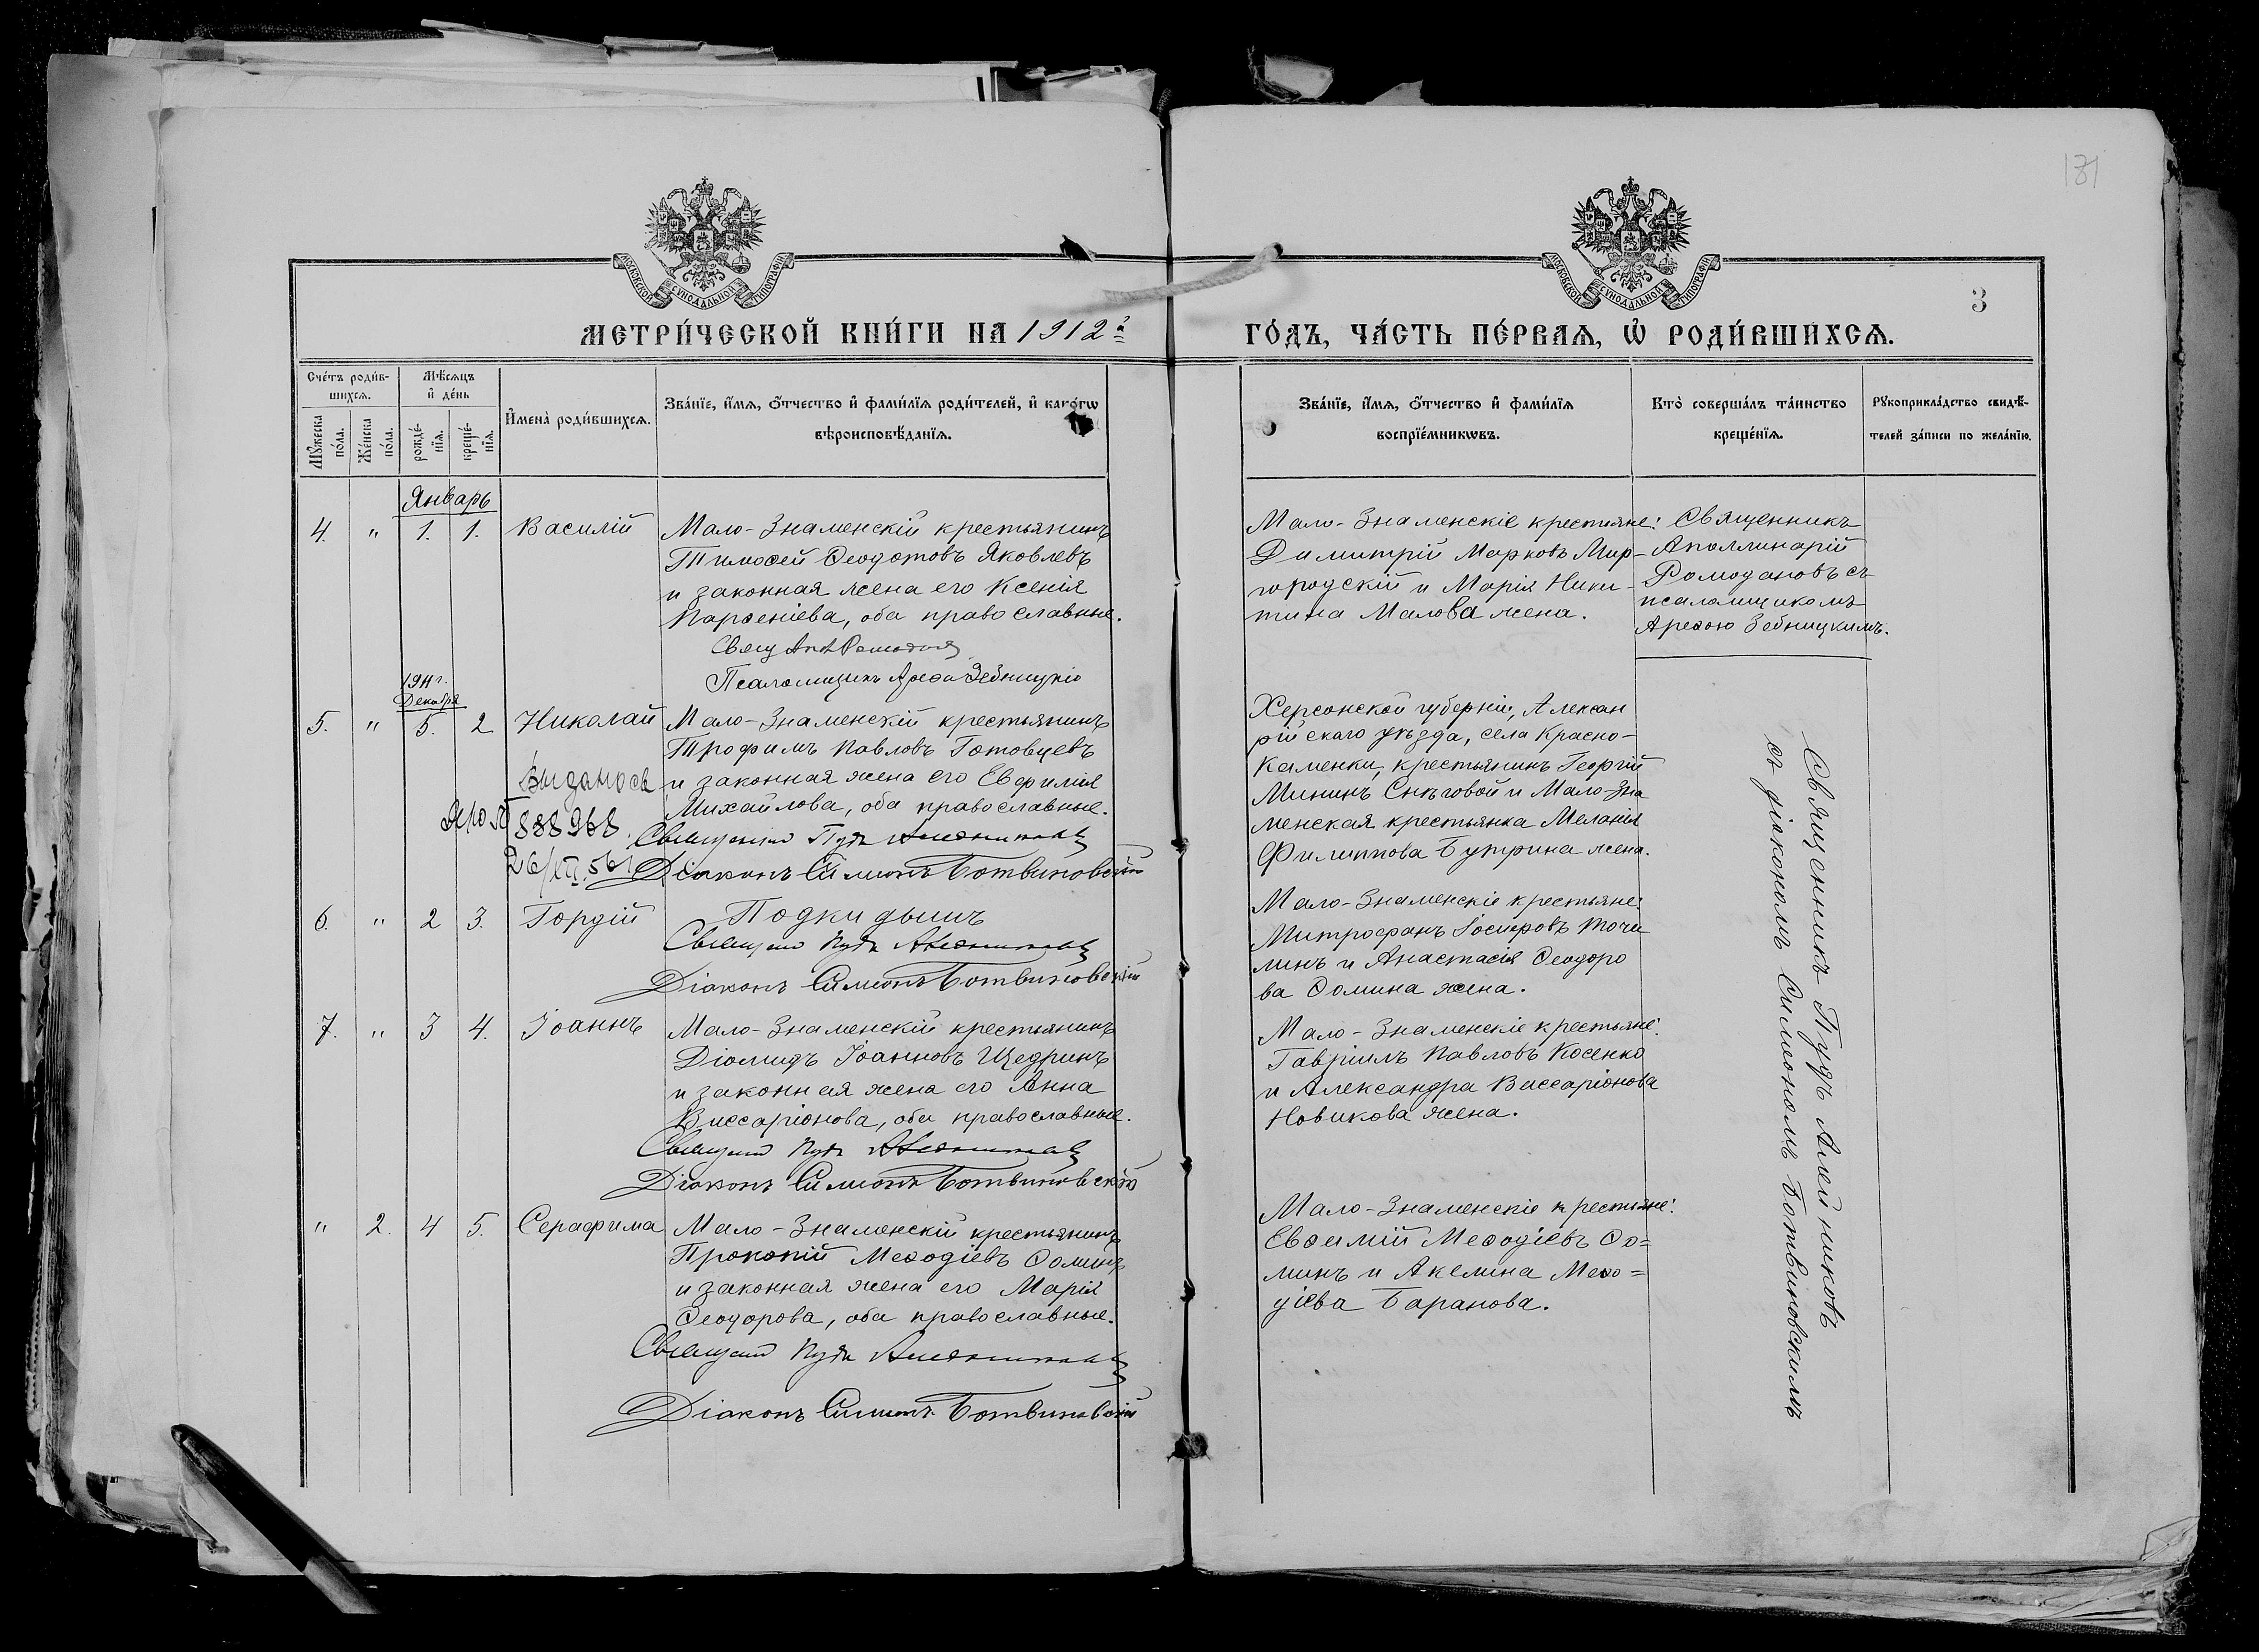 131
МОСКОВСКОЙ СѴНОДАЛЬНОЙ ТИПОГРАФІИ
МОСКОВСКОЙ СѴНОДАЛЬНОЙ ТИПОГРАФІИ
3
МЕТРИ́ЧЕСКОЙ КНИ́ГИ НА 1912 г.
ГО́ДЪ, ЧА́СТЬ ПЕ́РВАѦ, Ѡ҆ РОДИ́ВШИХСѦ.
Сче́тъ роди́в-
шихсѧ.
Мꙋ́жеска по́ла.
Же́нска по́ла.
Мѣ́сѧцъ
и҆ де́нь
рожде́-нїѧ.
креще́-нїѧ.
И҆мена̀ роди́вшихсѧ.
Зва́нїе, и҆́мѧ, ѻ҆́тчество и҆ фами́лїѧ роди́телей, и҆ како́гѡ
вѣроисповѣ́данїѧ.
Зва́нїе, и҆́мѧ, ѻ҆́тчество и҆ фами́лїѧ
воспрїе́мникѡвъ.
Кто̀ соверша́лъ та́инство
креще́нїѧ.
Рꙋкоприкла́дство свидѣ́-
телей за́писи по жела́нїю.
Январь
4. " 1. 1. Василій
Мало-Знаменскій крестьянинъ
Тимоѳей Ѳеодотовъ Яковлевъ
и законная жена его Ксенія
Парѳеніева, оба православные.
Псаломщикъ Ареѳа Зебницкій
Мало-Знаменскіе крестьяне:
Димитрій Марковъ Мир-
городскій и Марія Ники-
тина Малова жена.
Священникъ
Аполлинарій
Ромодановъ съ
псаломщикомъ
Ареѳою Зебницкимъ.
1911 г.
Декабря
5. " 5. 2 Николай
Мало-Знаменскій крестьянинъ
Трофимъ Павловъ Готовцевъ
и законная жена его Евфимія
Михайлова, оба православные.
Выдано св
ЯРО №
888968
26/XII 56 г
Священникъ Пудъ Алейниковъ
Діаконъ Симеонъ Ботвиновскій
Херсонской губерніи, Алексан
рійскаго уѣзда, села Красно-
каменки, крестьянинъ Георгій
Мининъ Снѣговой и Мало-Зна
менская крестьянка Меланія
Филиппова Бутрина жена.
6. " 2 3. Гордій
Подкидышъ
Священникъ Пудъ Алейниковъ
Діаконъ Симеонъ Ботвиновскій
Мало-Знаменскіе крестьяне:
Митрофанъ Іосифовъ Точи
линъ и Анастасія Ѳеодоро
ва Ѳомина жена.
7. " 3 4. Іоаннъ
Мало-Знаменскій крестьянинъ
Діомидъ Іоанновъ Щедринъ
и законная жена его Анна
Виссаріонова, оба православные.
Священникъ Пудъ Алейниковъ
Діаконъ Симеонъ Ботвиновскій
Мало-Знаменскіе крестьяне:
Гавріилъ Павловъ Косенко
и Александра Виссаріонова
Новикова жена.
" 2. 4 5. Серафима
Мало-Знаменскій крестьянинъ
Прокопій Меѳодіевъ Ѳоминъ
и законная жена его Марія
Ѳеодорова, оба православные.
Священникъ Пудъ Алейниковъ
Діаконъ Симеонъ Ботвиновскій
Мало-Знаменскіе крестьяне:
Евѳимій Меѳодіевъ Ѳо=
минъ и Акелина Меѳо=
діева Баранова.
Священникъ Пудъ Алейниковъ
съ діакономъ Симеономъ Ботвиновскимъ